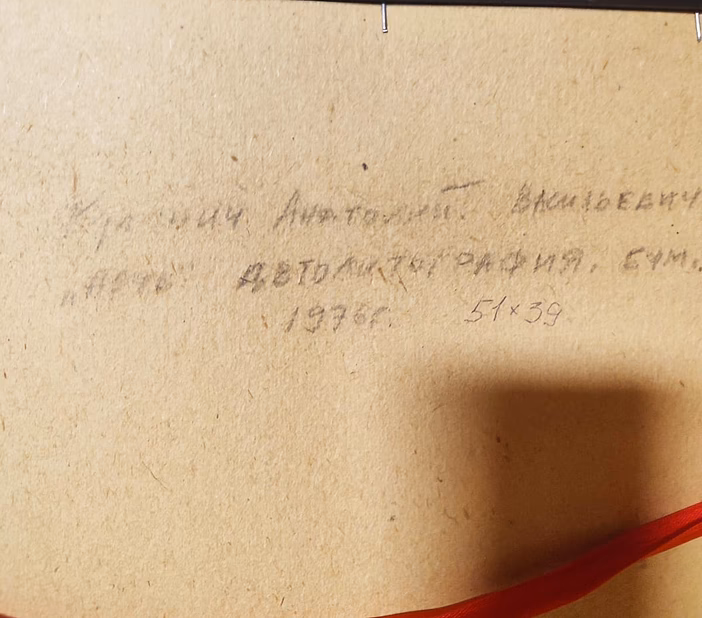 Анатолий Васильевич
автолитография. бум.
1976г. 51×39